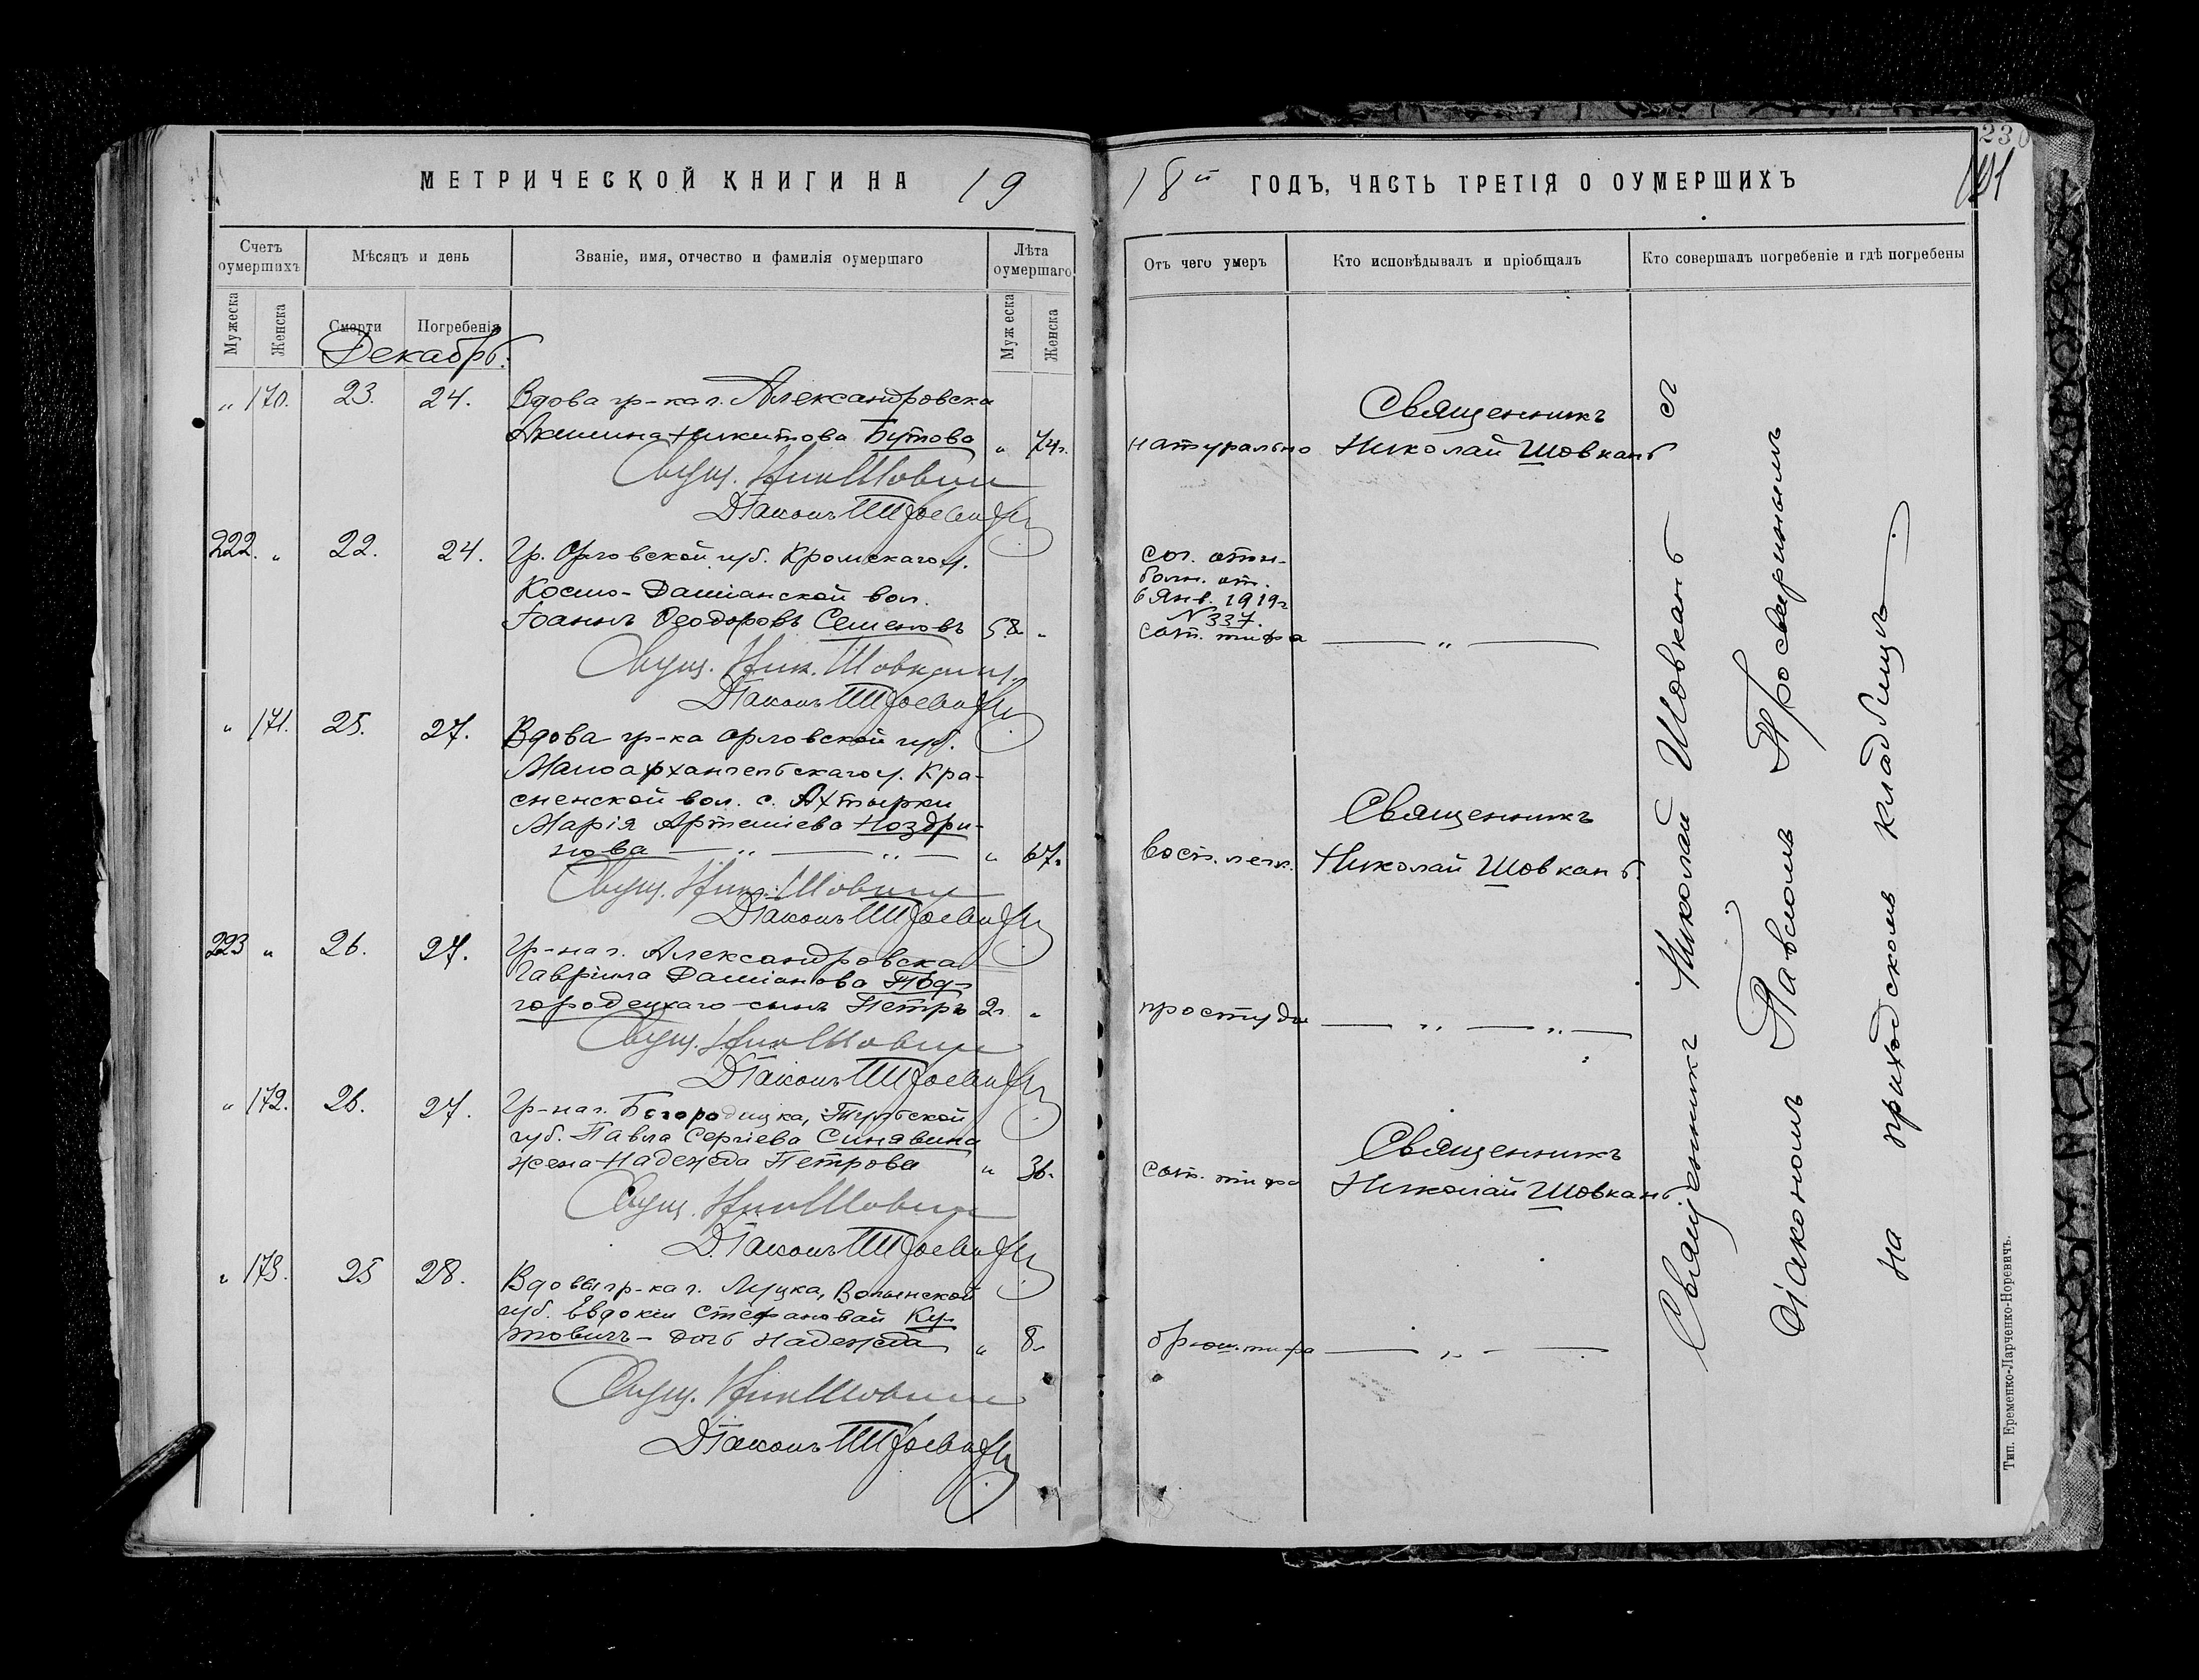 МЕТРИЧЕСКОЙ КНИГИ НА 19
18й ГОДЪ, ЧАСТЬ ТРЕТІЯ О ОУМЕРШИХЪ
230
Счетъ оумершихъ
Мѣсяцъ и день
Званіе, имя, отчество и фамилія оумершаго
Лѣта оумершаго
Отъ чего умеръ
Кто исповѣдывалъ и пріобщалъ
Кто совершалъ погребеніе и гдѣ погребены
Мужеска
Женска
Смерти
Погребенія
Мужеска
Женска
Декабрь.
„ 170. 23. 24. Вдова гр-ка г. Александровска
Акилина Никитова Бутова „ 74г.
натурально
Священникъ
Николай Шовкань
Свящ. Ник Шовкань
Діаконъ
222. „ 22. 24. Гр. Орловской губ. Кромскаго у.
Космо-Даміанской вол.
Іоаннъ Ѳеодоровъ Семеновъ 58 „
сог. отн.
болн. от.
6 Янв. 1919г
N 337.
сып. тифа
— „ —
Свящ. Ник. Шовкань.
Діаконъ
„ 171. 25. 27. Вдова гр-ка Орловской губ.
Малоархангельскаго у. Кра-
сненской вол. с. Ахтырки
Марія Артеміева Ноздри-
нова — „ — „ — „ 67.
восп. легк.
Священникъ
Николай Шовкань.
Свящ. Ник. Шовкань
Діаконъ
223 „ 26. 27. Гр-на г. Александровска
Гавріила Даміанова Под-
городецкаго сынъ Петръ 2г. „
простуда
— „ — „ —
Свящ. Ник Шовкань
Діаконъ
„ 172. 26. 27. Гр-на г. Богородицка, Тульской
губ. Павла Сергіева Синявина
жена Надежда Петрова „ 36.
сып. тифа
Священникъ
Николай Шовкань
Свящ. Ник Шовкань
Діаконъ
„ 173. 25 28. Вдовы гр-ка г. Луцка, Волынской
губ. Евдокіи Стефановой Ку-
товичъ - дочь Надежда „ 8.
брюш. тифа
— „ — —
Свящ. Ник Шовкань
Діаконъ
Священникъ Николай Шовкань съ
Діакономъ Павломъ Просвиринымъ
на приходскомъ кладбищѣ
Тип. Еременко-Ларченко-Норевичъ.